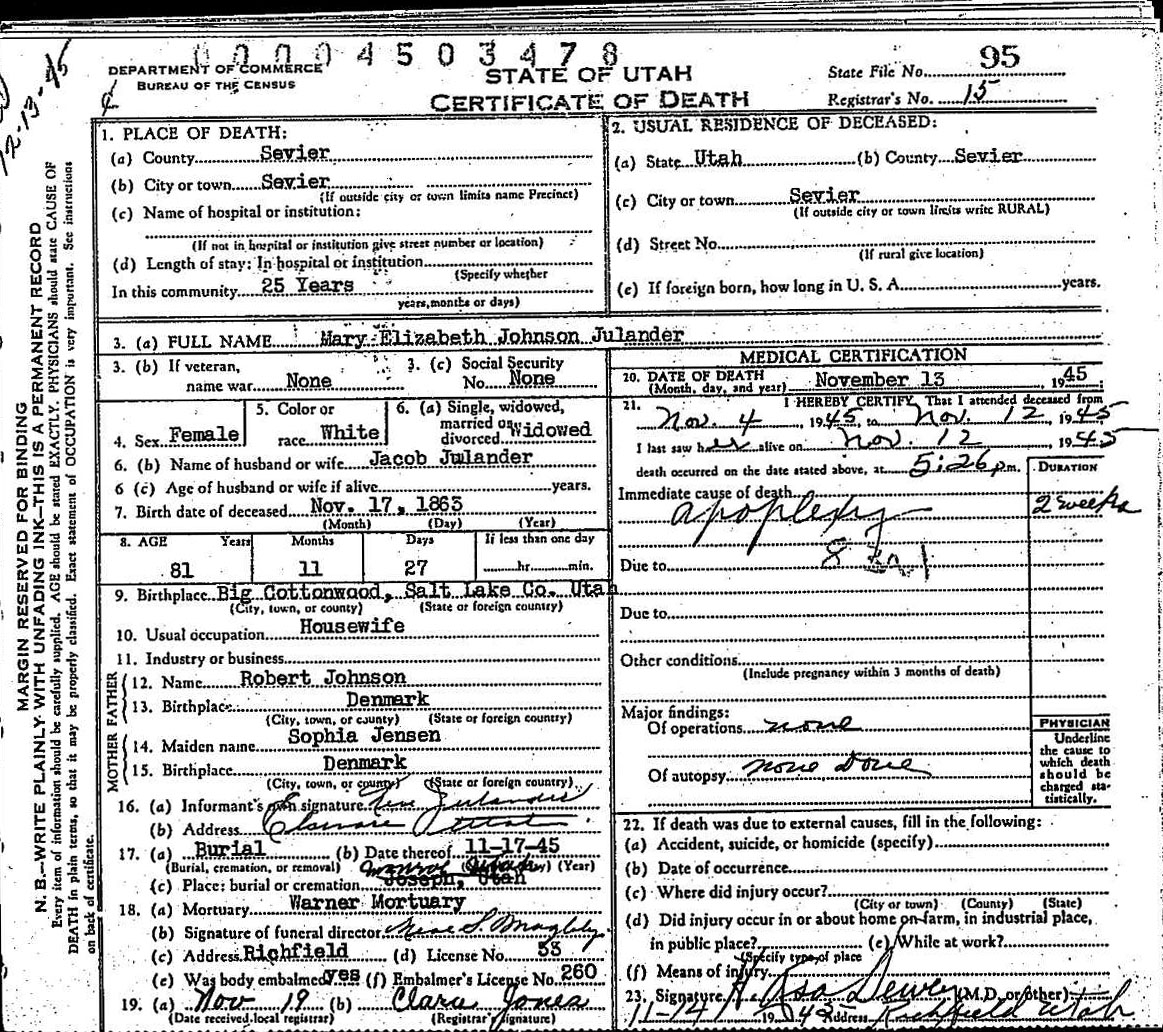 12-13-45
0 0 0 0 4 5 0 3 4 7 8
DEPARTMENT OF COMMERCE
BUREAU OF THE CENSUS
STATE OF UTAH
CERTIFICATE OF DEATH
State File No. 95
Registrar's No. 15
MARGIN RESERVED FOR BINDING
N. B.—WRITE PLAINLY WITH UNFADING INK—THIS IS A PERMANENT RECORD
Every item of information should be carefully supplied. AGE should be stated EXACTLY. PHYSICIANS should state CAUSE OF
DEATH in plain terms, so that it may be properly classified. Exact statement of OCCUPATION is very important. See instructions
on back of certificate.
1. PLACE OF DEATH:
(a) County Sevier
(b) City or town Sevier
(If outside city or town limits name Precinct)
(c) Name of hospital or institution:
(If not in hospital or institution give street number or location)
(d) Length of stay: In hospital or institution
(Specify whether
In this community 25 Years
years, months or days)
2. USUAL RESIDENCE OF DECEASED:
(a) State Utah (b) County Sevier
(c) City or town Sevier
(If outside city or town limits write RURAL)
(d) Street No.
(If rural give location)
(e) If foreign born, how long in U. S. A. years.
3. (a) FULL NAME Mary Elizabeth Johnson Julander
3. (b) If veteran,
name war None
3. (c) Social Security
No. None
4. Sex Female
5. Color or
race White
6. (a) Single, widowed,
married or
divorced Widowed
6. (b) Name of husband or wife Jacob Julander
6 (c) Age of husband or wife if alive years.
7. Birth date of deceased Nov. 17, 1863
(Month) (Day) (Year)
8. AGE Years Months Days If less than one day
81 11 27 hr. min.
9. Birthplace Big Cottonwood, Salt Lake Co. Utah
(City, town, or county) (State or foreign country)
10. Usual occupation Housewife
11. Industry or business
FATHER
12. Name Robert Johnson
13. Birthplace Denmark
(City, town, or county) (State or foreign country)
MOTHER
14. Maiden name Sophia Jensen
15. Birthplace Denmark
(City, town, or county) (State or foreign country)
16. (a) Informant's own signature Julander
(b) Address Elsinore Utah
17. (a) Burial (b) Date thereof 11-17-45
(Burial, cremation, or removal) (Year)
Monroe Utah
(c) Place: burial or cremation Joseph, Utah
18. (a) Mortuary Warner Mortuary
(b) Signature of funeral director
(c) Address Richfield (d) License No. 53
(e) Was body embalmed yes (f) Embalmer's License No. 260
19. (a) Nov 19 (b) Clara Jones
(Date received local registrar) (Registrar signature)
MEDICAL CERTIFICATION
20. DATE OF DEATH
(Month, day, and year) November 13, 1945
21. I HEREBY CERTIFY, That I attended deceased from
Nov. 4, 1945, to Nov. 12 1945
I last saw her alive on Nov. 12 1945
death occurred on the date stated above, at 5:26 p.m.
DURATION
Immediate cause of death
apoplexy 2 weeks
Due to
Due to
Other conditions
(Include pregnancy within 3 months of death)
Major findings:
Of operations none
Of autopsy none done
PHYSICIAN
Underline
the cause to
which death
should be
charged sta-
tistically.
22. If death was due to external causes, fill in the following:
(a) Accident, suicide, or homicide (specify)
(b) Date of occurrence
(c) Where did injury occur?
(City or town) (County) (State)
(d) Did injury occur in or about home on farm, in industrial place,
in public place? (e) While at work?
(Specify type of place
(f) Means of injury
23. Signature H Asa Dewey (M.D. or other)
Address Richfield Utah